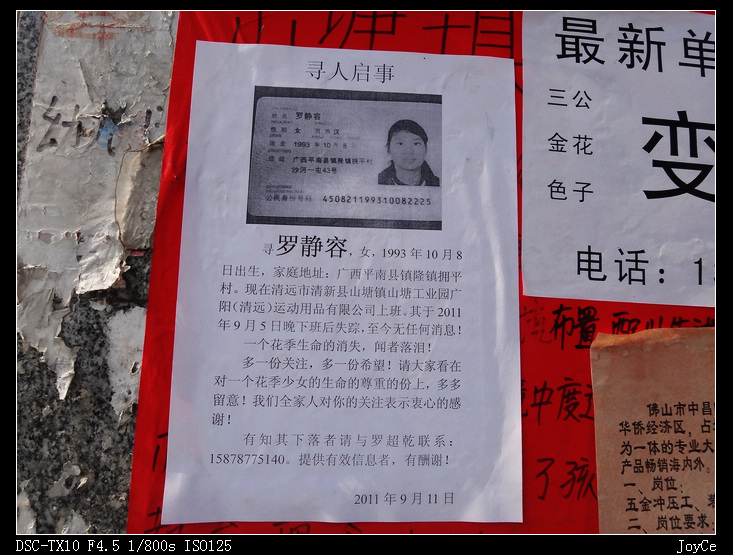 寻人启事
姓名 罗静容
性别 女 民族 汉
1993 年 10 月 8 日
住址 广西平南县镇隆镇拥平村
沙河一屯43号
公民身份号码 450821199310082225
寻罗静容，女，1993 年 10 月 8
日出生，家庭地址：广西平南县镇隆镇拥平
村。现在清远市清新县山塘镇山塘工业园广
阳（清远）运动用品有限公司上班。其于 2011
年 9 月 5 日晚下班后失踪，至今无任何消息！
一个花季生命的消失，闻者落泪！
多一份关注，多一份希望！请大家看在
对一个花季少女的生命的尊重的份上，多多
留意！我们全家人对你的关注表示衷心的感
谢！
有知其下落者请与罗超乾联系：
15878775140。提供有效信息者，有酬谢！
2011 年 9 月 11 日
最新单
三公
金花
色子
变
电话：1
布置
中度
了孩
佛山市中昌
华侨经济区，占
为一体的专业大
产品畅销海内外。
一、岗位：
五金冲压工、
二、岗位要求：
DSC-TX10 F4.5 1/800s ISO125
JoyCe